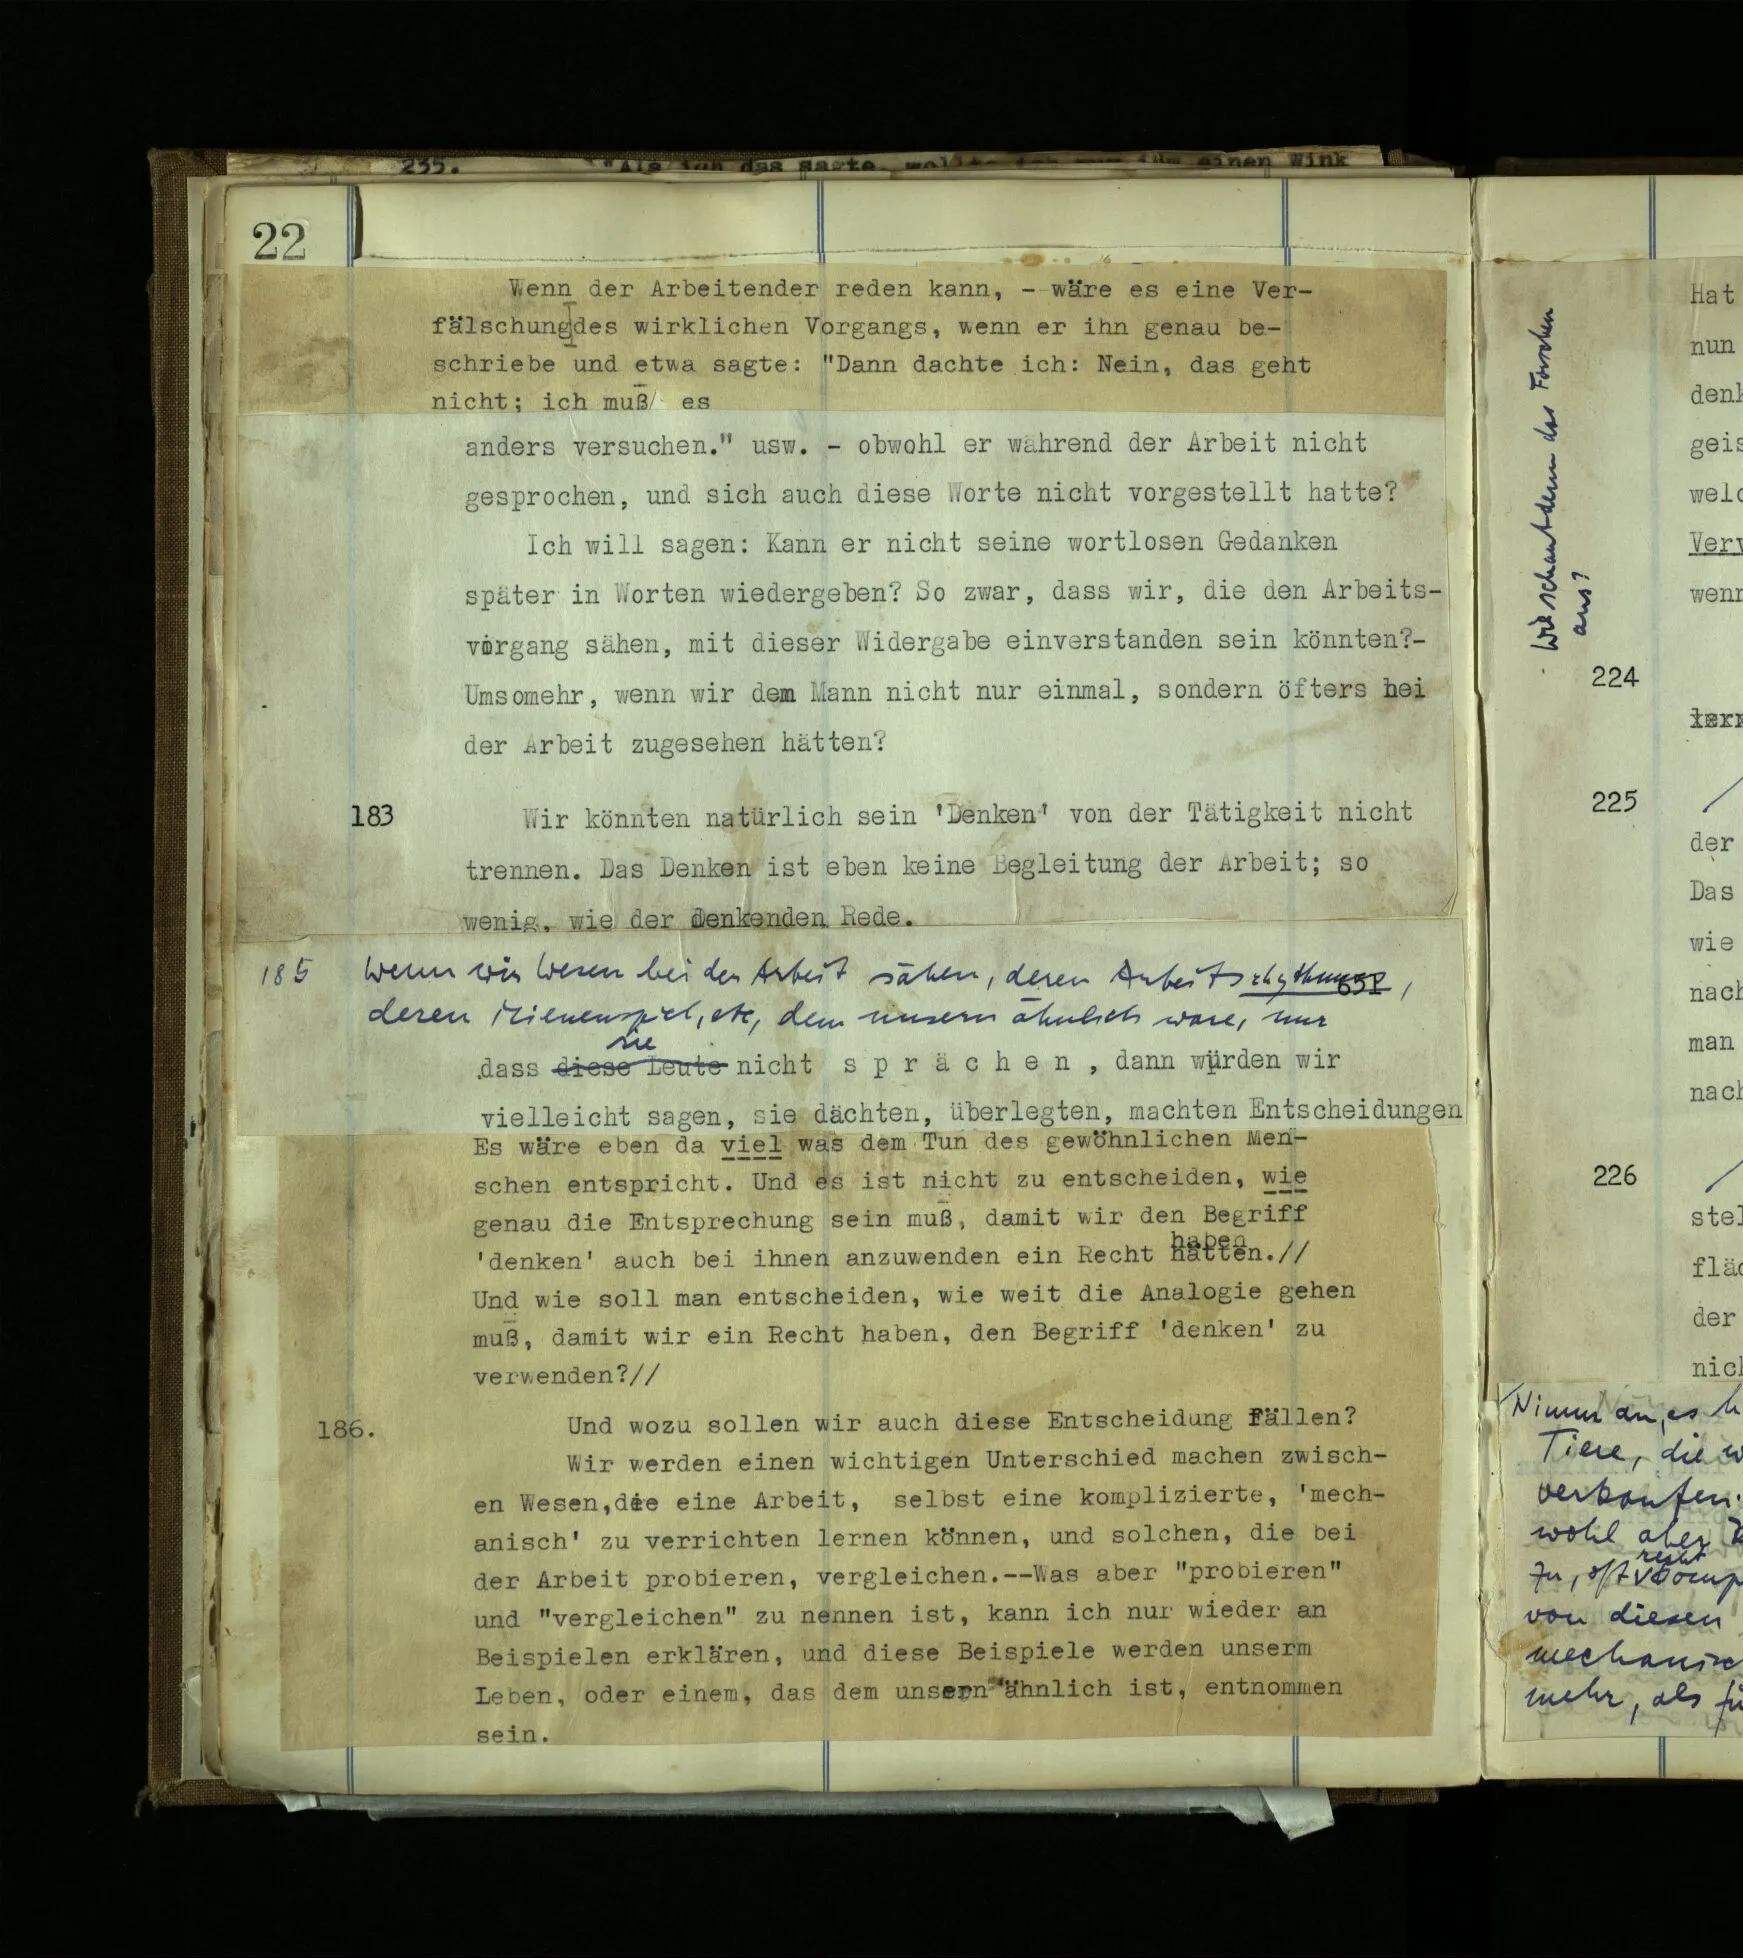 235. "Als ich das sagte, wollte ich nur ihm einen Wink
22
Wenn der Arbeitender reden kann, - wäre es eine Ver-
fälschung des wirklichen Vorgangs, wenn er ihn genau be-
schriebe und etwa sagte: "Dann dachte ich: Nein, das geht
nicht; ich muß es
anders versuchen." usw. - obwohl er während der Arbeit nicht
gesprochen, und sich auch diese Worte nicht vorgestellt hatte?
Ich will sagen: Kann er nicht seine wortlosen Gedanken
später in Worten wiedergeben? So zwar, dass wir, die den Arbeits-
vorgang sähen, mit dieser Widergabe einverstanden sein könnten?-
Umsomehr, wenn wir dem Mann nicht nur einmal, sondern öfters bei
der Arbeit zugesehen hätten?
183 Wir könnten natürlich sein 'Denken' von der Tätigkeit nicht
trennen. Das Denken ist eben keine Begleitung der Arbeit; so
wenig, wie der denkenden Rede.
185 Wenn wir Wesen bei der Arbeit sähen, deren Arbeitsrhythmus,
deren Mienenspiel, etc, dem unsern ähnlich wäre, nur
sie
dass diese Leute nicht sprächen, dann würden wir
vielleicht sagen, sie dächten, überlegten, machten Entscheidungen
Es wäre eben da viel was dem Tun des gewöhnlichen Men-
schen entspricht. Und es ist nicht zu entscheiden, wie
genau die Entsprechung sein muß, damit wir den Begriff
haben
'denken' auch bei ihnen anzuwenden ein Recht hätten.//
Und wie soll man entscheiden, wie weit die Analogie gehen
muß, damit wir ein Recht haben, den Begriff 'denken' zu
verwenden?//
186. Und wozu sollen wir auch diese Entscheidung Fällen?
Wir werden einen wichtigen Unterschied machen zwisch-
en Wesen,die eine Arbeit, selbst eine komplizierte, 'mech-
anisch' zu verrichten lernen können, und solchen, die bei
der Arbeit probieren, vergleichen.--Was aber "probieren"
und "vergleichen" zu nennen ist, kann ich nur wieder an
Beispielen erklären, und diese Beispiele werden unserm
Leben, oder einem, das dem unsern ähnlich ist, entnommen
sein.
Wie schaut denn das Forschen
aus?
Hat
nun
denk
geis
welc
Verw
wenn
224
225
der
Das
wie
nach
man
nach
226
stel
fläc
der
nich
Nimm an, es
Tiere, die
verkaufen.
wohl aber
recht
zu, oft
von diesen
mechanisc
mehr, als